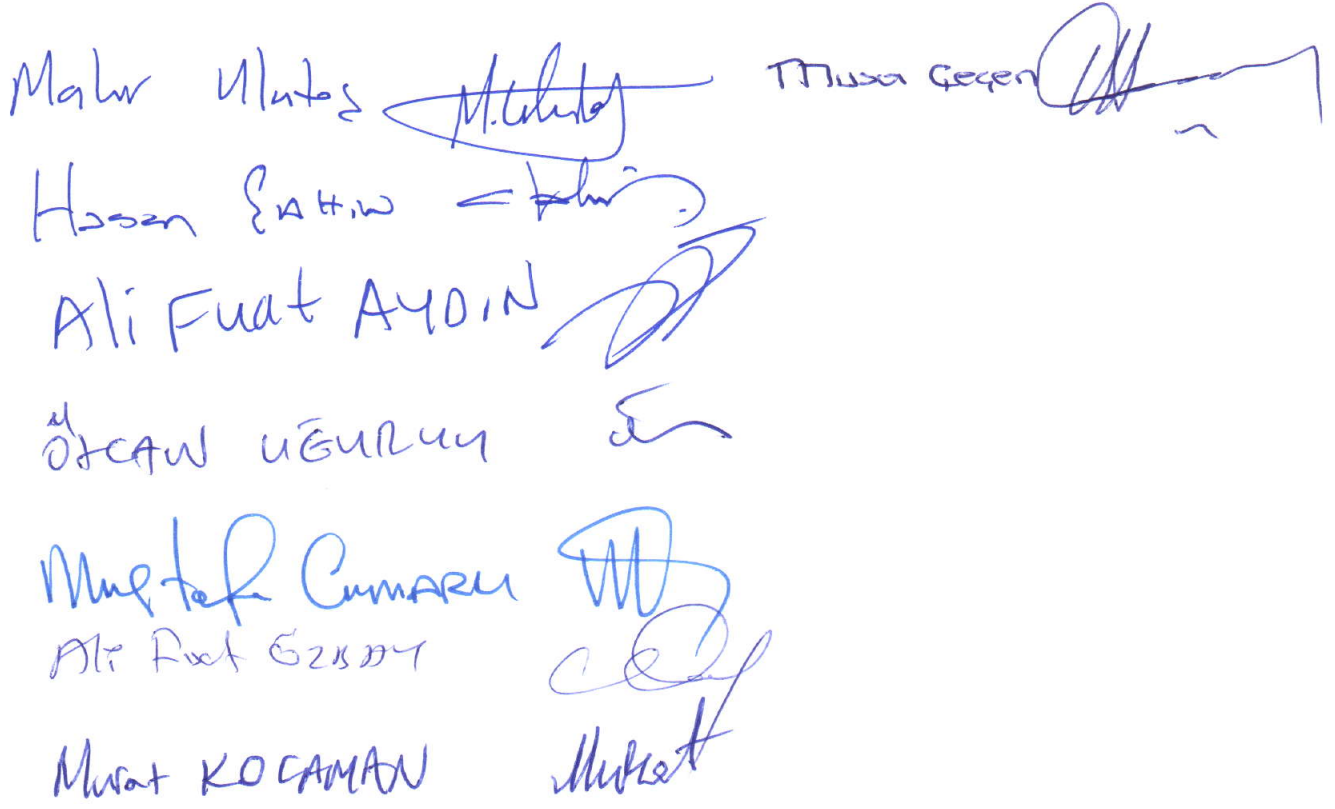 Mahir Ulutaş M.Ulutaş Musa Çeçen
Hasan ŞAHİN
Ali Fuat AYDIN
ÖZCAN UĞURLU
Mustafa
Ali Fuat ÖZBAY
Murat KOCAMAN Murat